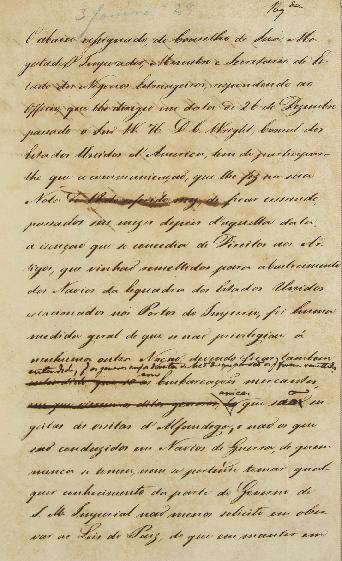 3 Janeiro - 28
O abaixo assignado, do Conselho de Sua Ma-
gestade o Imperador, Ministro e Secretario de Es-
tado dos Negocios Estrangeiros, respondendo ao
Officio que lhe dirigio em data de 26 de Dezembro
passado o Snr W. H. D. C. Wright, Consul dos
Estados Unidos d'America, tem de participar-
lhe que a communicação, que lhe fez na sua
Nota de ficar cessando,
passados seis mezes depois d'aquella data,
a isenção que se concedia de Direitos aos Ar-
tigos, que vinhão remettidos para abastecimento
dos Navios da Esquadra dos Estados Unidos
estacionados nos Portos do Imperio, foi huma
medida geral de que se não privilegiou á
nenhuma outra Nação devendo ficar tambem
embarcações mercantes,
que são su-
geitas às visitas d'Alfandega, e não os que
são conduzidos em Navios de Guerra, de quem
nunca se tomou, nem se pertende tomar qual-
quer conhecimento da parte do Governo de
S. M. Imperial não menos solicito em obser-
var as Leis do Paiz, do que em manter em